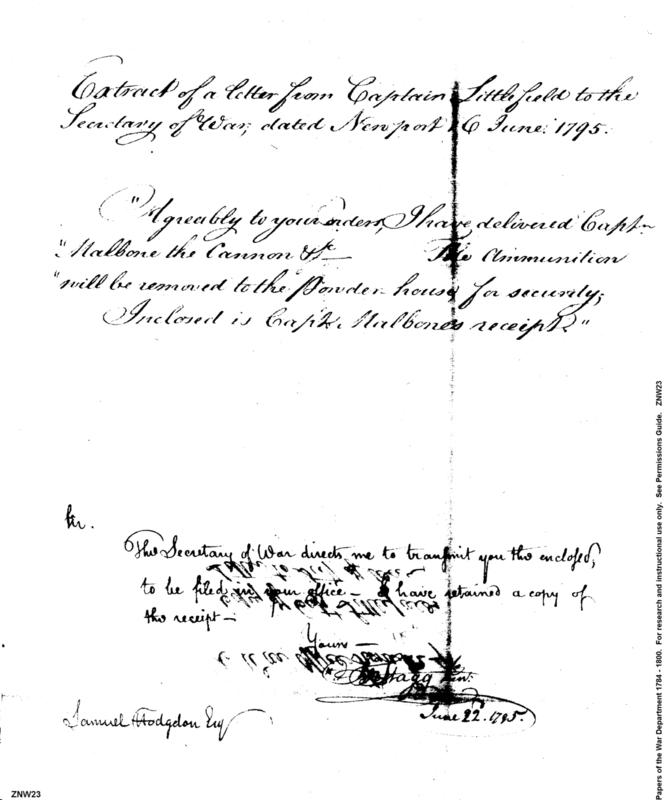 Extract of a letter from Captain Littlefield to the
Secretary of War, dated Newport 16 June. 1795.
"Agreably to your orders, I have delivered Capt.n
"Malbone the Cannon &c— The Ammunition
"will be removed to the Powder house for security;
Inclosed is Capt. Malbones receipt."
Sir.
The Secretary of War directs me to transmit you the enclosed,
to be filed in your office— I have retained a copy of
the receipt—
Yours—
Stagg Jun.r
June 22.d 1795.
Samuel Hodgdon Esq
ZNW23
Papers of the War Department 1784 - 1800. For research and instructional use only. See Permissions Guide. ZNW23